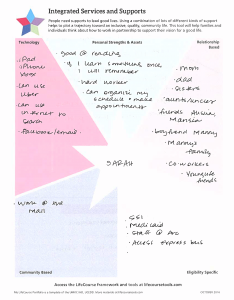 Integrated Services and Supports
People need supports to lead good lives. Using a combination of lots of different kinds of support
helps to plot a trajectory toward an inclusive, quality community life. This tool will help families and
individuals think about how to work in partnership to support their vision for a good life.
Technology
Personal Strengths & Assets
Relationship Based
iPad
iPhone
can use
Uber
can use
internet to
search
Facebook/email
good @ reading
if I learn something once,
I will remember
hard worker
can organize my
schedule + make
appointments
mom
dad
sisters
aunts/uncles
friends
boyfriend Manny
Manny's
family
co-workers
friends
SARAH
Work @ the
mall
SSI
Medicaid
Staff @ Arc
Access express bus
Community Based
Eligibility Specific
Access the LifeCourse framework and tools at lifecoursetools.com